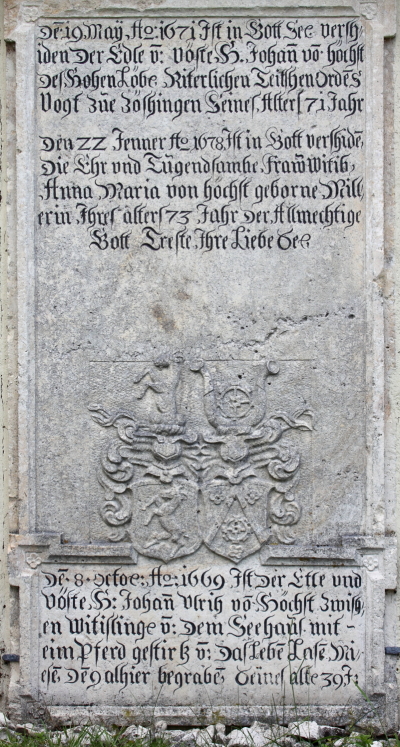 Den 19 Maÿ Aõ: 1671 Ist in Gott Seel: versch-
iden Der Edle v̄: Vöste H: Johañ võ höchst
des Hohen Löbl: Riterlichen Teitshen Ordens
Vogt zue Zöshingen Seines Alters 71 Jahr
Den 22 Jenner Aõ 1678 Ist in Gott vershidẽ
Die Ehr und Tugendsambe Fraw Witib,
Anna Maria von höchst geborne Mill-
erin Ihres alters 73 Jahr der Allmechtige
Gott Treste Ihre Liebe Sel
Den 8 Octob: Aõ: 1669 Ist Der Etle und
Vöste H: Johañ Ulrih võ Höchst zwish-
en Witislinge v̄: Dem Seehaus mit -
eim Pferd gestirtz v̄: Das Lebẽ Lasẽ Mi-
esẽ Dẽ 9 alhier begrabẽ Seines alte 39 J: